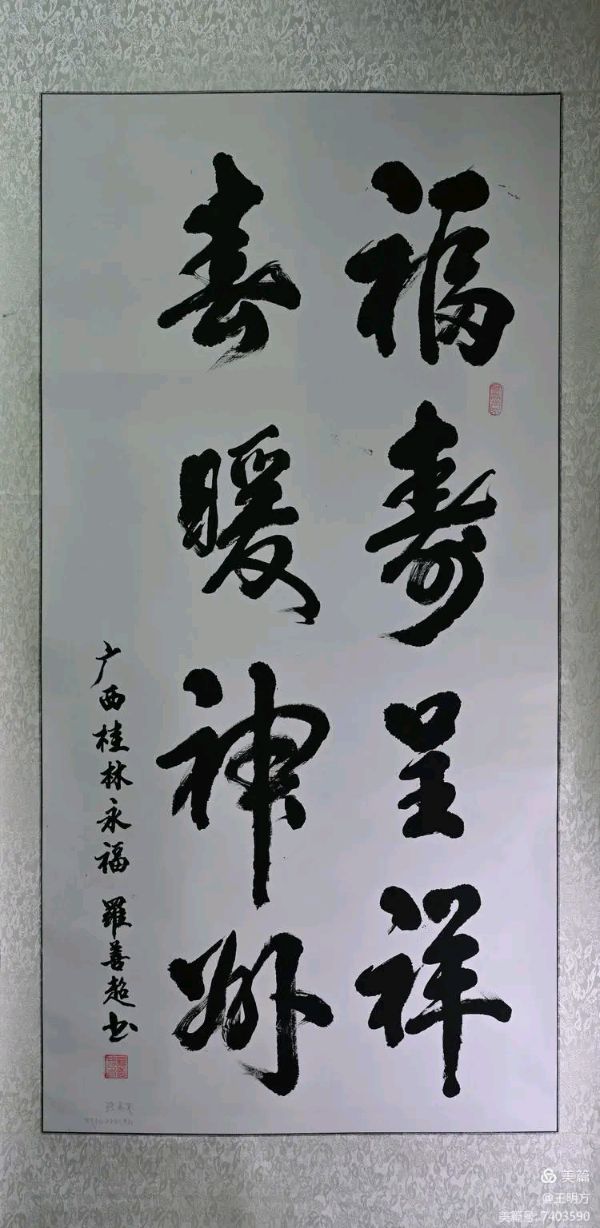 福寿呈祥
春暖神州
广西桂林永福 羅善超书
美篇
@王明方
美篇号:7403590